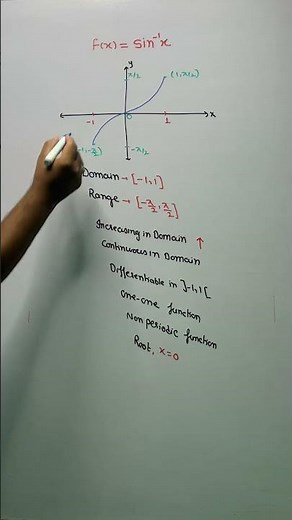 f(x) = sin⁻¹x
y
π/2
(1, π/2)
-1
0
1
x
-1, -π/2)
-π/2
Domain → [-1, 1]
Range → [-π/2, π/2]
Increasing in Domain ↑
Continuous in Domain
Differentiable in ]-1, 1[
one-one function
Non periodic function
Root, x=0